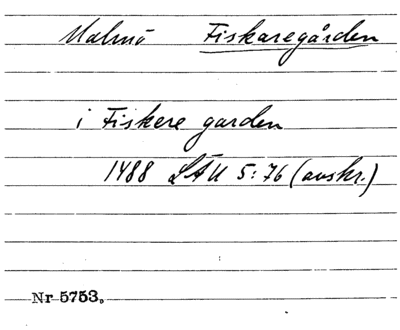 Malmö Fiskaregården
i Fiskere garden
1488 LÅU 5:76 (avskr.)
Nr 5753.